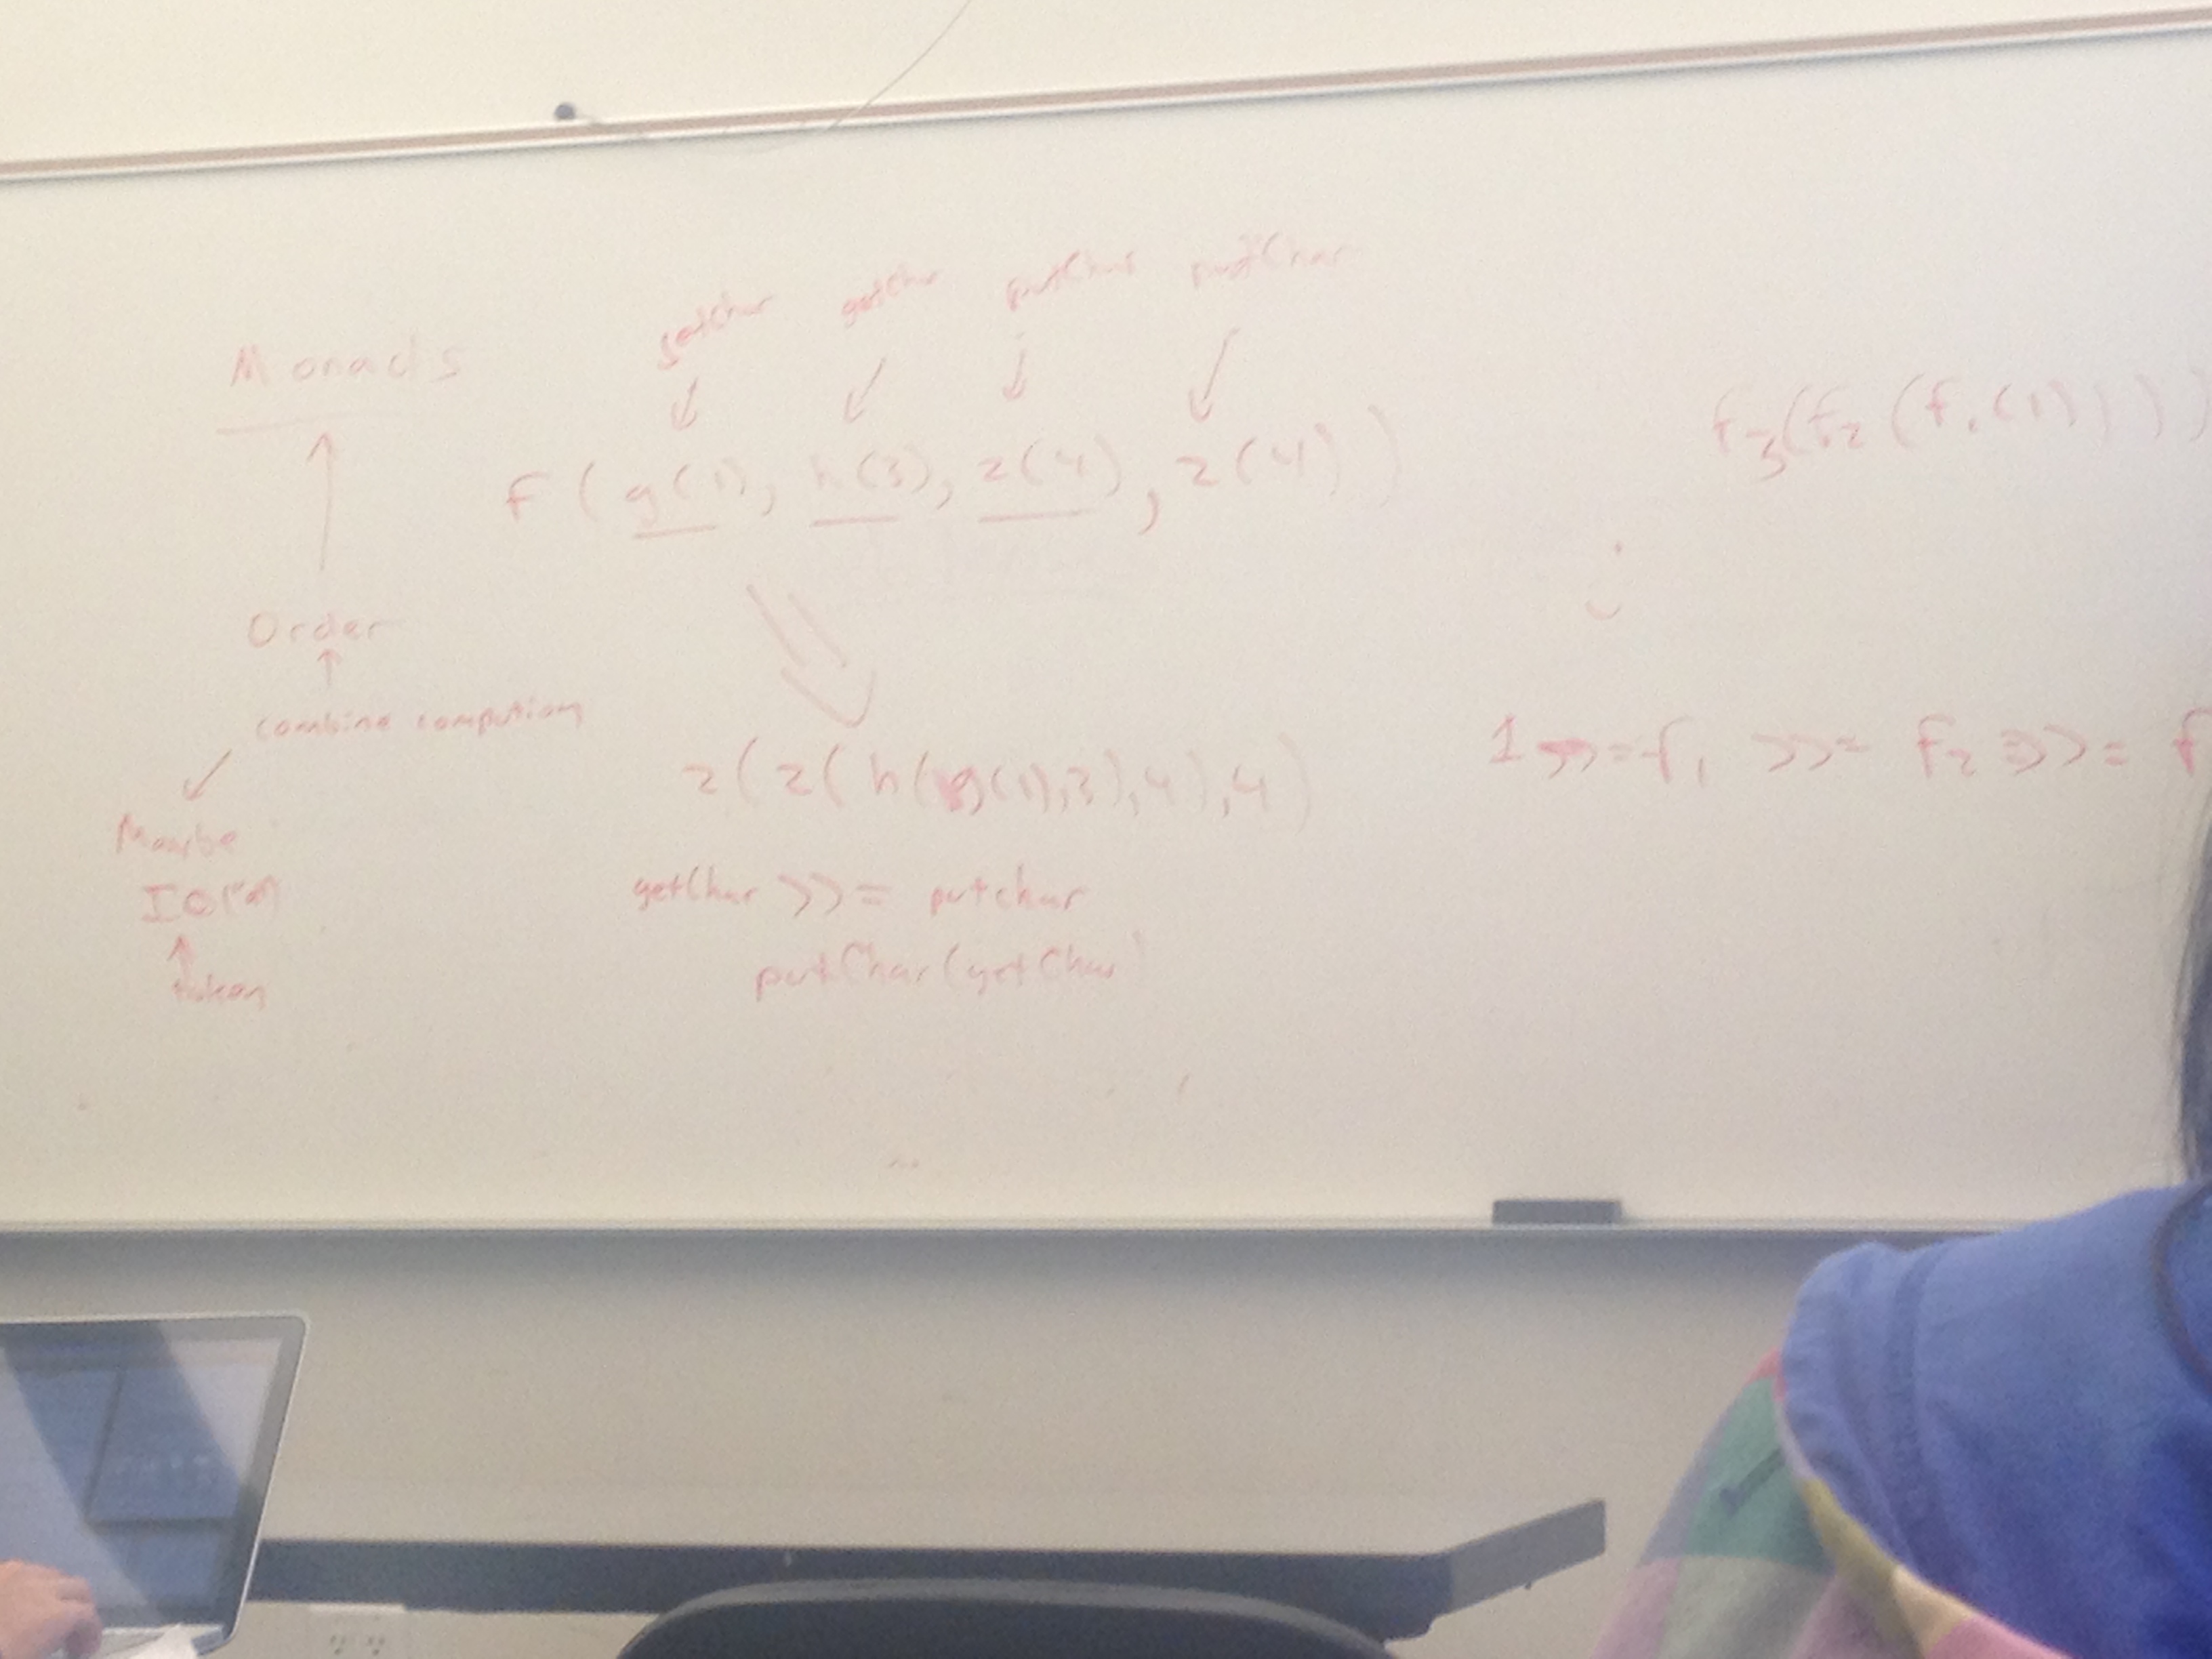 Monads
Order
combine compution
Maybe
token
getChar getChar putChar putChar
F ( g(1), h(3), z(4), z(4) )
z( z( h( g(1),3),4),4)
getChar >>= putchar
putChar(getChar)
f3(f2(f1(1)))
1 >>= f1 >>= f2 >>= f